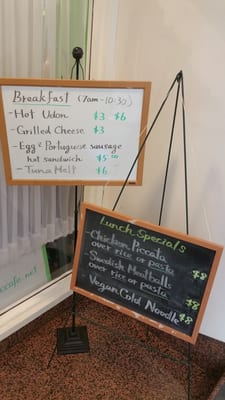 Breakfast (7am-10:30)
-Hot Udon $3 $6
-Grilled Cheese $3
-Egg & Portuguese sausage
hot sandwich $5.00
-Tuna Melt $6
Lunch Specials
-Chicken Piccata
over rice or pasta $8
-Swedish Meatballs
over rice or pasta $8
-Vegan Cold Noodle $8
cafe.net